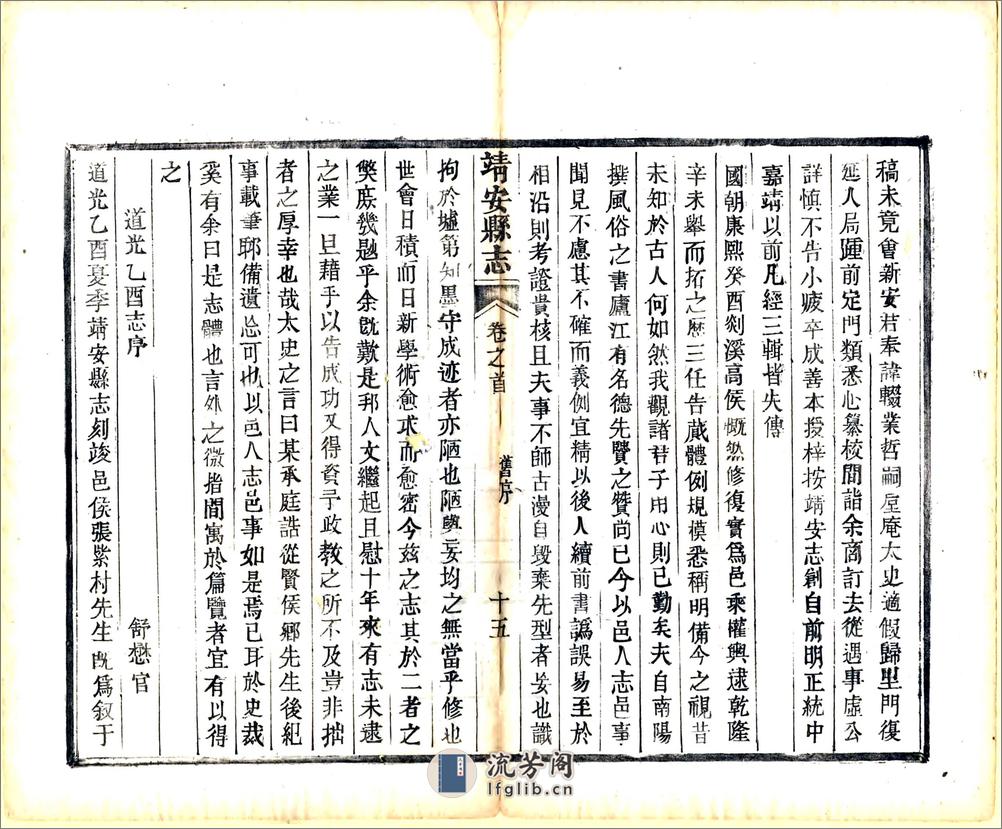 稿未竟會新安若奉諱輟業哲嗣屋庵太史適假歸里門復
延人局踵前定門類悉心纂校間詣余商訂去從遇事虛公
詳慎不告小疲卒成善本授梓按靖安志創自前明正統中
嘉靖以前凡經三輯皆失傳
國朝康熙癸酉剡溪高侯慨然修復實爲邑乘權輿逮乾隆
辛未舉而拓之歷三任告蕆體例規模悉稱明備今之視昔
未知於古人何如然我觀諸君子用心則已勤矣夫自南陽
撰風俗之書廬江有名德先賢之贊尚已今以邑人志邑事
聞見不慮其不確而義例宜精以後人續前書譌誤易至於
相沿則考證貴核且夫事不師古漫自毀棄先型者妄也識
靖安縣志
卷之首
舊序
十五
拘於墟第知墨守成迹者亦陋也陋與妄均之無當乎修也
世會日積而日新學術愈求而愈密今茲之志其於二者之
獘庶幾趂乎余旣歎是邦人文繼起且慰十年來有志未逮
之業一旦藉乎以告成功又得資予政教之所不及豈非拙
者之厚幸也哉太史之言曰某承庭誥從賢侯鄉先生後紀
事載筆聊備遺忘可也以邑人志邑事如是焉已耳於史裁
奚有余曰是志體也言外之微㫖間寓於篇覽者宜有以得
之
道光乙酉志序
舒懋官
道光乙酉夏季靖安縣志刻竣邑侯張紫村先生旣爲叙于
流芳阁
lfglib.cn